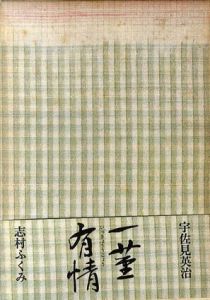 宇佐見英治
一茎
有情
志村ふくみ